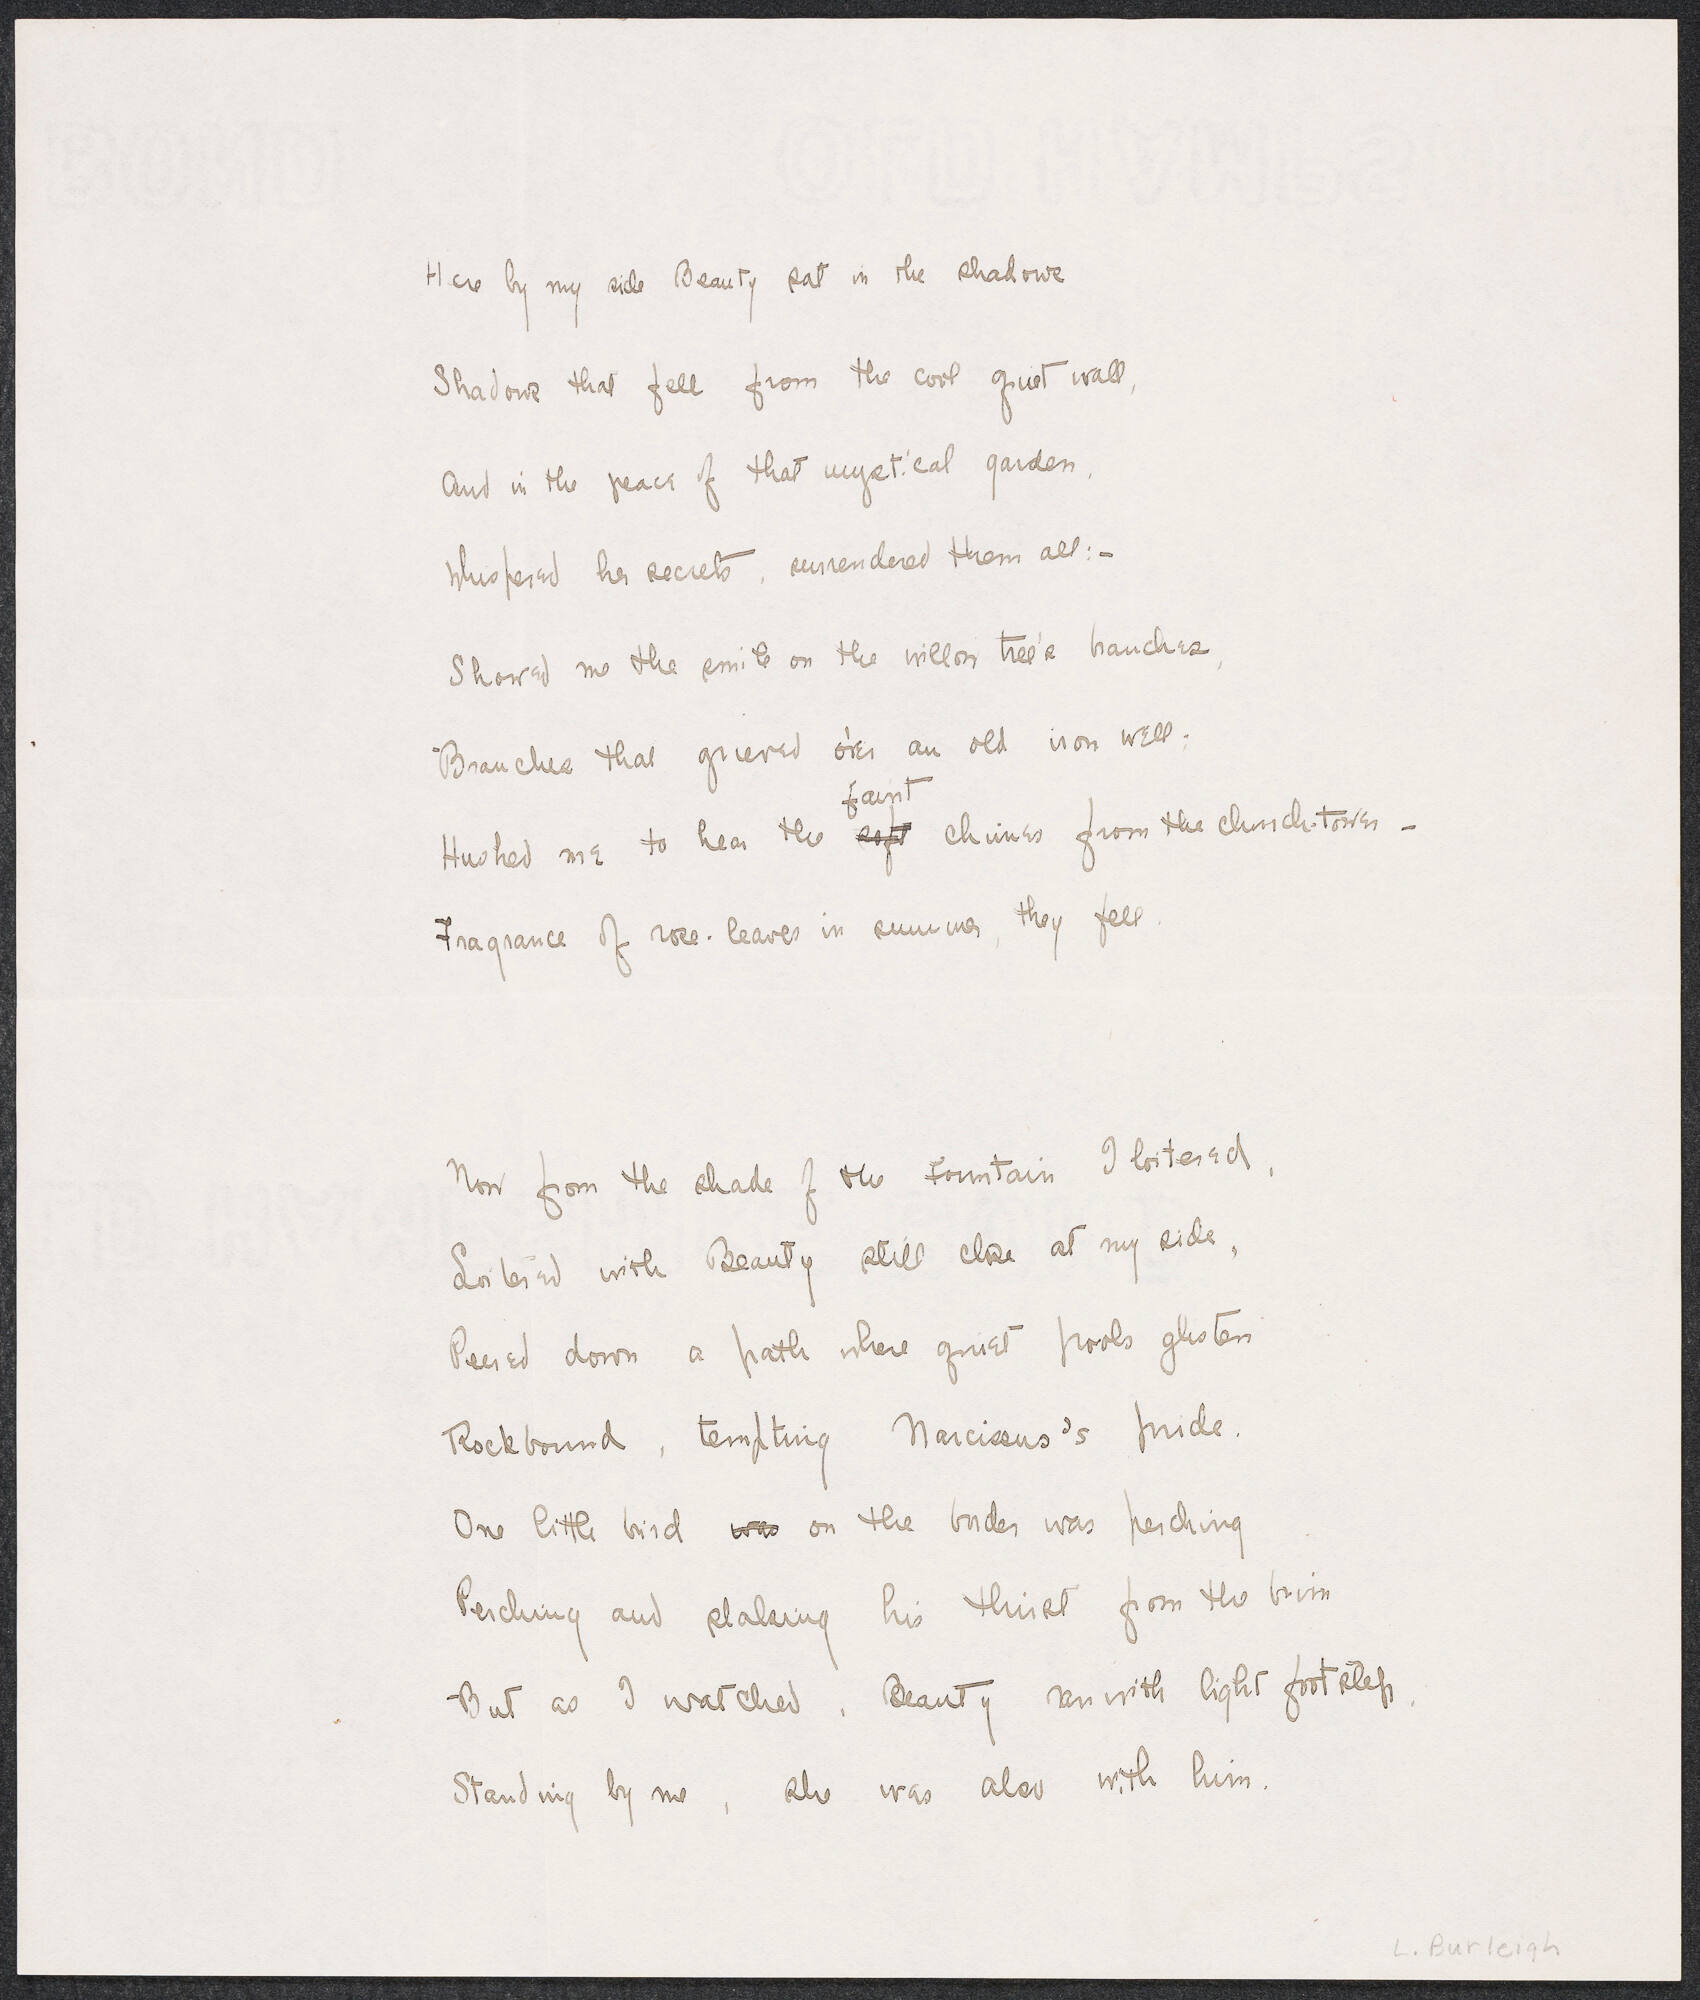 Here by my side Beauty sat in the shadows
Shadows that fell from the cool quiet wall,
And in the peace of that mystical garden,
Whispered her secrets, surrendered them all:-
Showed me the smile on the willow tree's branches,
Branches that grieved o'er an old iron well;
faint
Hushed me to hear the soft chimes from the church-tower -
Fragrance of rose-leaves in summer, they fell.
Now from the shade of the Fountain I loitered,
Loitered with Beauty still close at my side,
Peered down a path where quiet pools glisten
Rockbound, tempting Narcissus's pride.
One little bird was on the border was perching
Perching and slaking his thirst from the brim
But as I watched, Beauty ran with light footstep,
Standing by me, she was also with him.
L. Burleigh